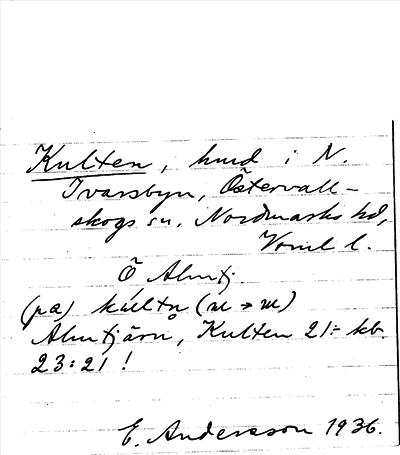 Kulten, hmd i N.
Ivarsbyn, Östervall-
skogs sn, Nordmarks hd,
Värml l.
Ö Älmtj.
(på)
Älmtjärn, Kulten 21:- kb.
23:21!
E. Andersson 1936.